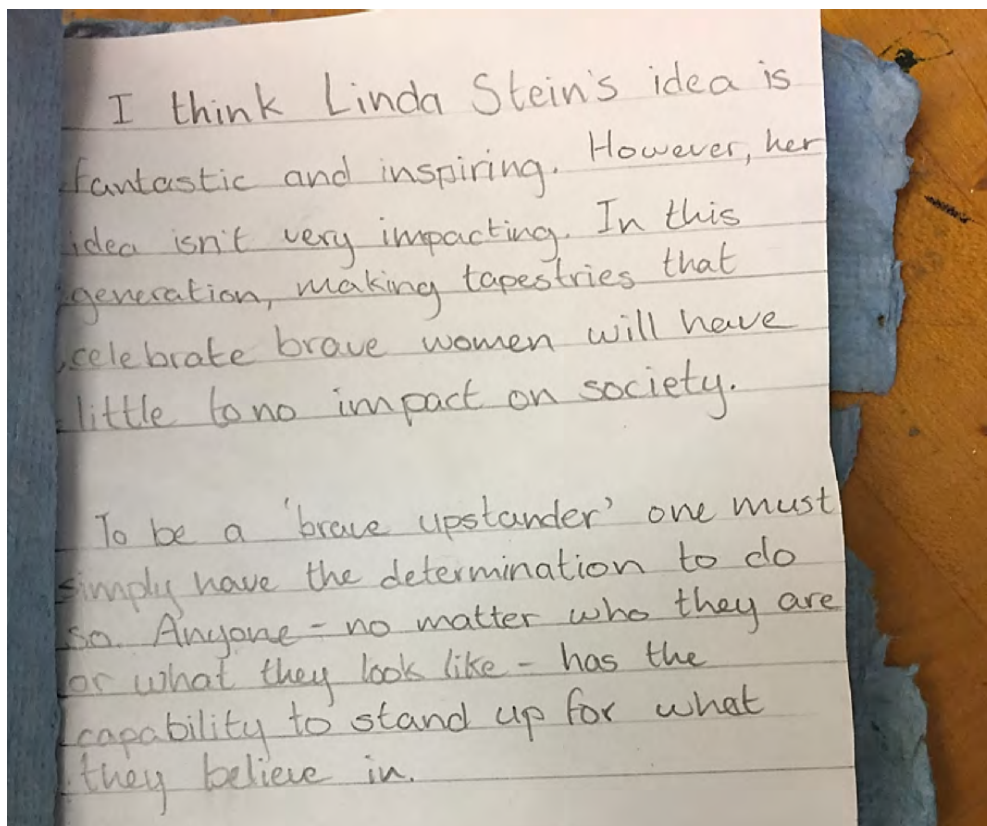 I think Linda Stein's idea is
fantastic and inspiring. However, her
idea isn't very impacting. In this
generation, making tapestries that
celebrate brave women will have
little to no impact on society.
To be a 'brave upstander' one must
simply have the determination to do
so. Anyone - no matter who they are
or what they look like - has the
capability to stand up for what
they believe in.